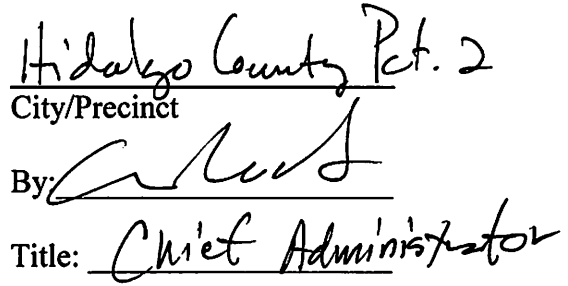 Hidalgo County Pct. 2
City/Precinct
By:
Title: Chief Administrator